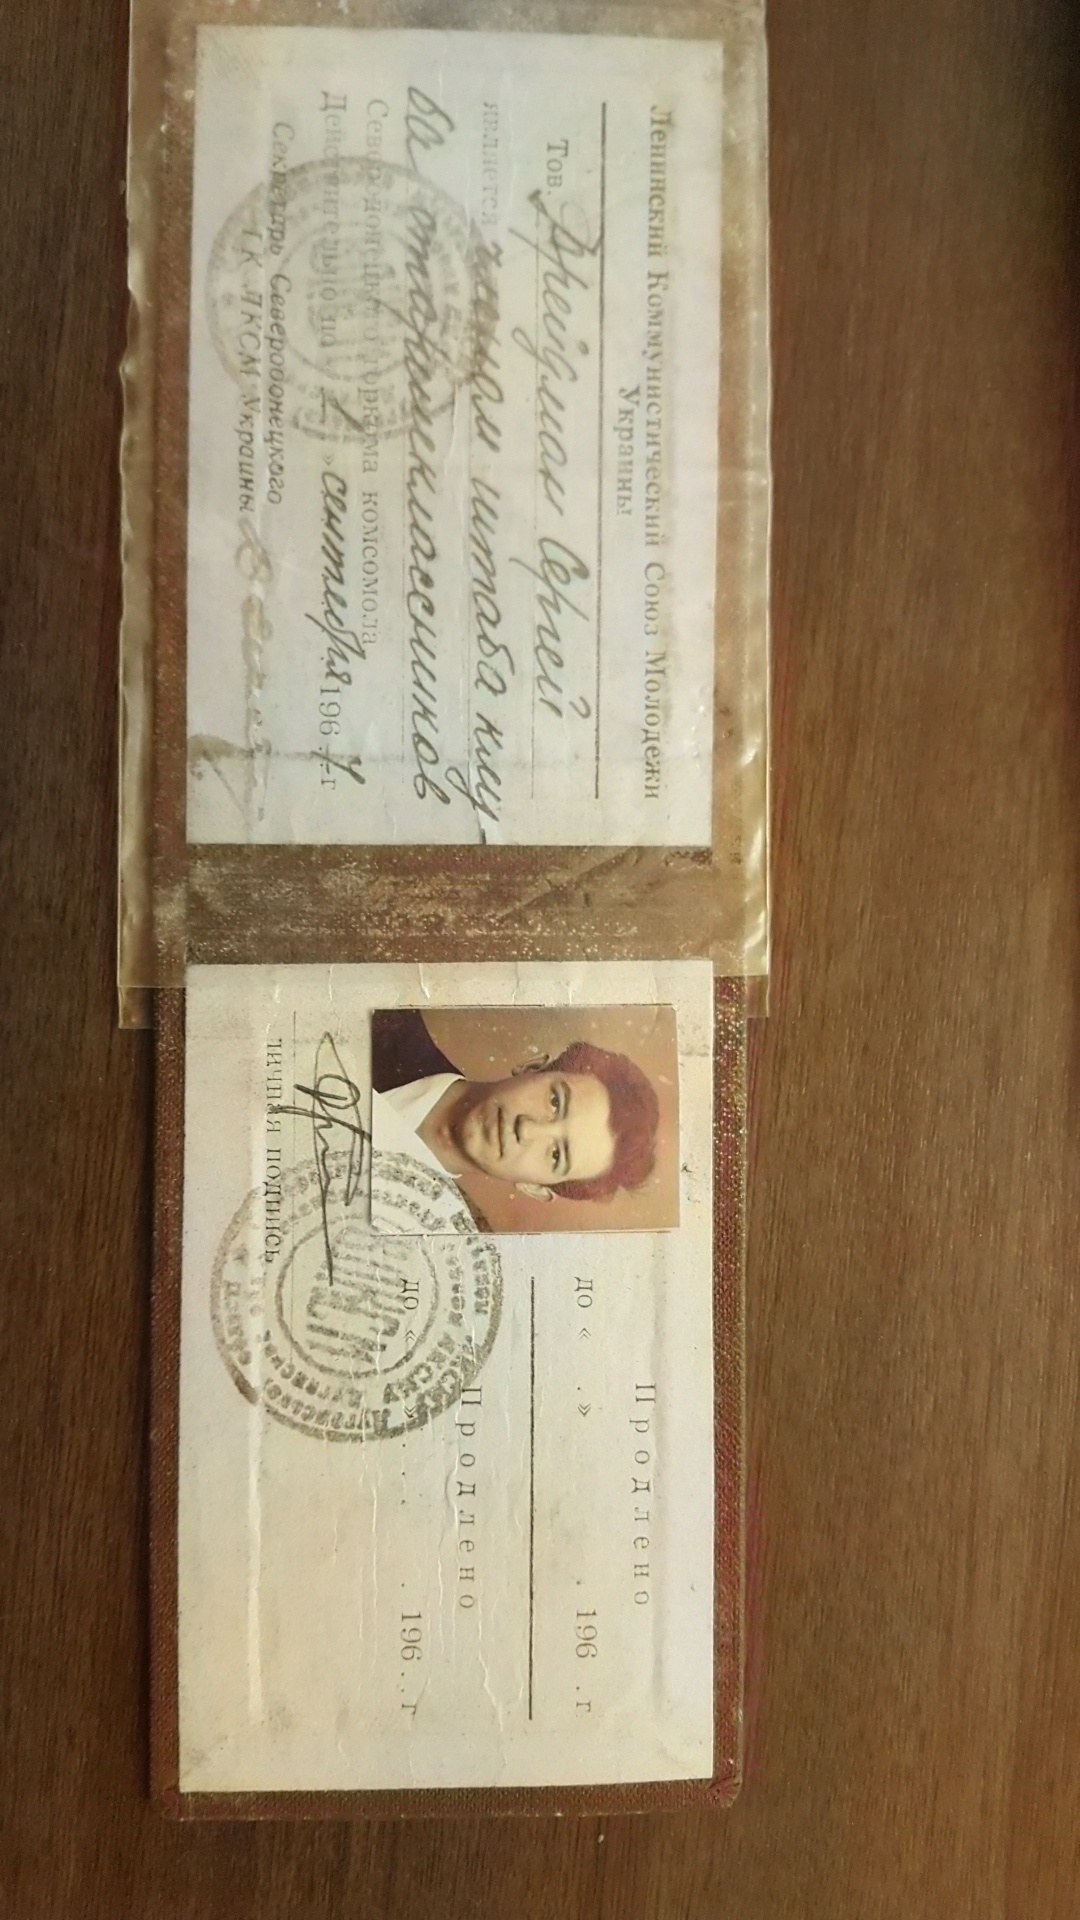 Ленинский Коммунистический Союз Молодежи
Украины
Тов. Дрейдман Сергей
является членом штаба клу-
ба старшеклассников
Северодонецкого горкома комсомола
Действительно по « 1 » сентября 1967 г
Секретарь Северодонецкого
ГК ЛКСМ Украины
Продлено
до « . » . 196 . г
Продлено
до « . » . . . 196 . . г
личная подпись